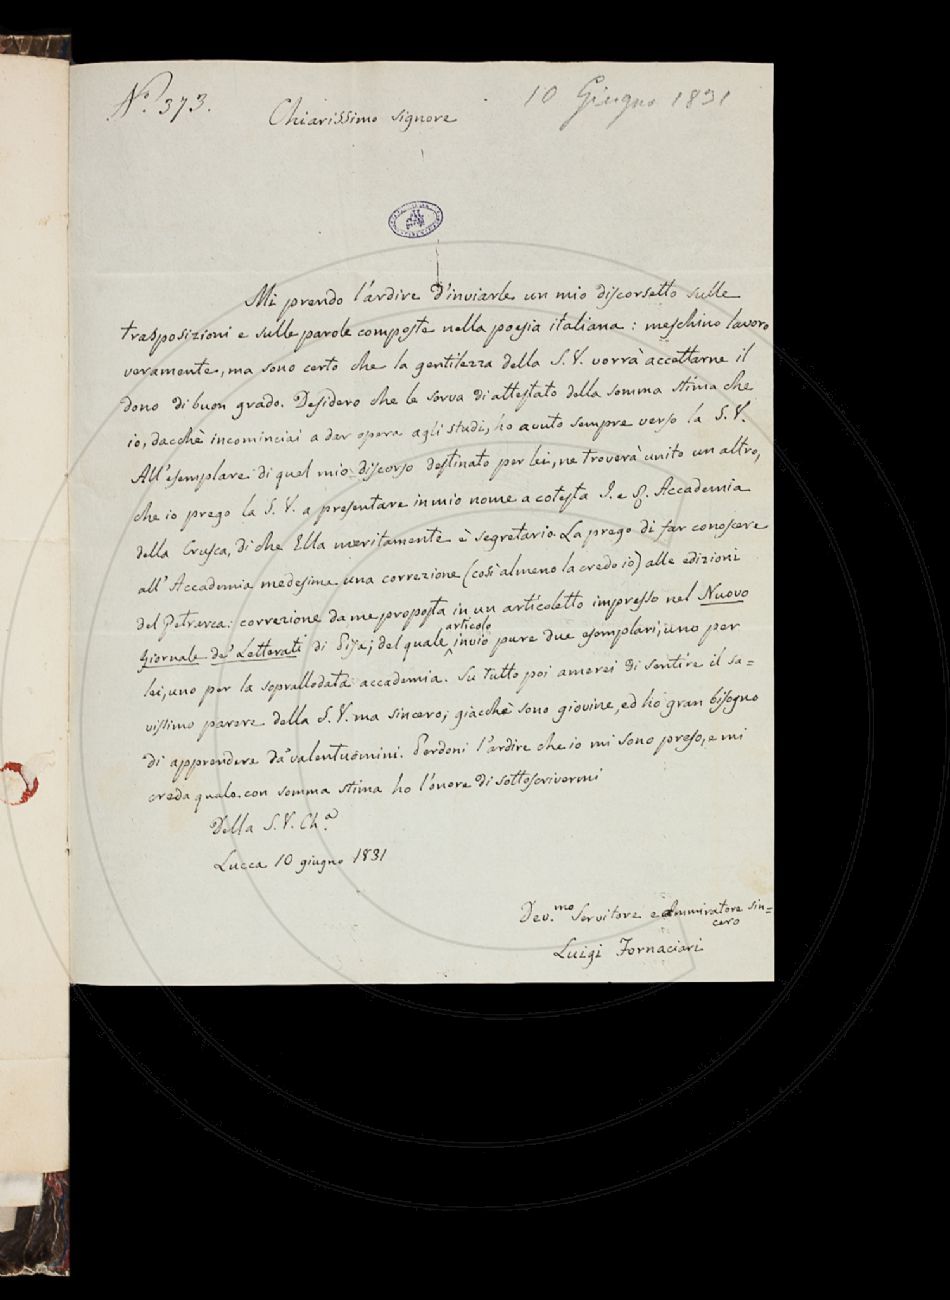 N.º 373.
10 Giugno 1831
Chiarissimo Signore
Mi prendo l'ardire d'inviarle un mio discorsetto sulle
trasposizioni e sulle parole composte nella poesia italiana: meschino lavoro
veramente, ma sono certo che la gentilezza della S. V. vorrà accettarne il
dono di buon grado. Desidero che le serva di attestato della somma stima che
io, dacchè incominciai a dar opera agli studi, ho avuto sempre verso la S. V.
All'esemplare di quel mio discorso destinato per lei, ne troverà unito un altro,
che io prego la S. V. a presentare in mio nome a cotesta I. e R. Accademia
della Crusca, di che Ella meritamente è segretario. La prego di far conoscere
all'Accademia medesima una correzione (così almeno la credo io) alle edizioni
del Petrarca: correzione da me proposta in un articoletto impresso nel Nuovo
Giornale de' Letterati di Pisa; del quale articolo invio pure due esemplari, uno per
lei, uno per la soprallodata accademia. Su tutto poi amerei di sentire il sa=
vissimo parere della S. V. ma sincero; giacchè sono giovine, ed ho gran bisogno
di apprendere da' valentuomini. Perdoni l'ardire che io mi sono preso, e mi
creda quale con somma stima ho l'onore di sottoscrivermi
Della S. V. Ch.ª
Lucca 10 giugno 1831
Dev.mo Servitore e Ammiratore sin=
cero
Luigi Fornaciari